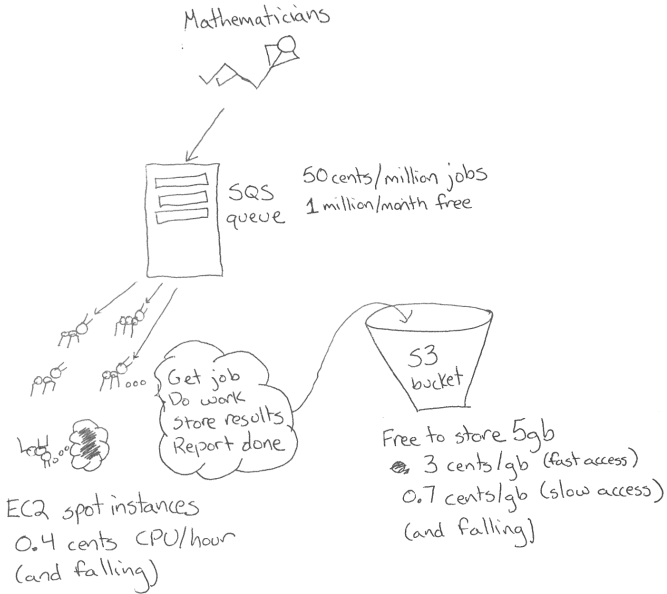 Mathematicians
SQS
queue
50 cents/million jobs
1 million/month free
Get job
Do work
Store results
Report done
S3
bucket
Free to store 5gb
3 cents/gb (fast access)
0.7 cents/gb (slow access)
(and falling)
EC2 spot instances
0.4 cents CPU/hour
(and falling)